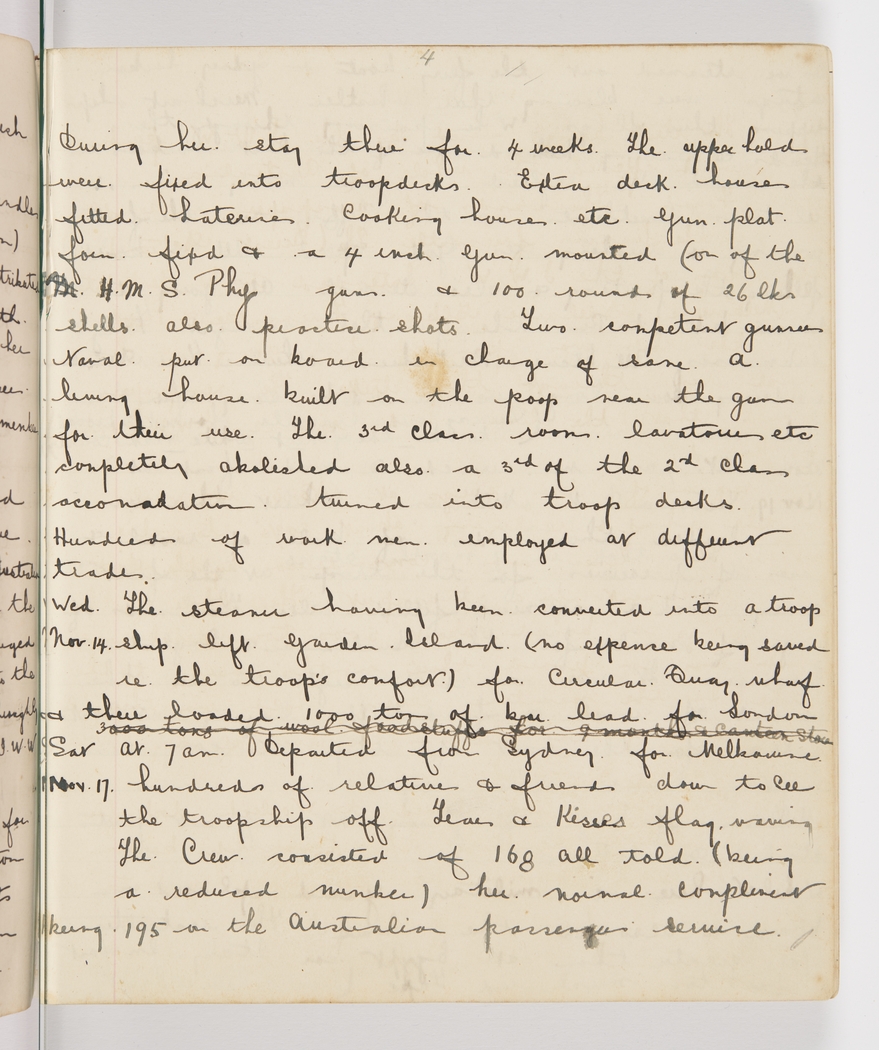 4
During her. stay there for. 4 weeks. The. upper hold
were. fixed into troopdecks. Extra deck. houses
fitted. Laterines. Cooking houses. etc. Gun. plat.
form. fixd & a 4 inch. Gun. mounted (on of the
H.M.S. guns. & 100. rounds of 26 lbs
shells. also. practice. shots. Two. competent gunners
Naval. put. on board. in charge of same. A.
living house. built on the poop near the gun
for. their use. The. 3rd Class. rooms. lavatories etc
conpletely abolished also. a 3rd of the 2nd Class
acconadation. turned into troop decks.
Hundreds of work men. employed at different
trades.
Wed. The. steamer having been. converted into a troop
Nov. 14. ship. left. Garden. Island. (no expence being saved
re. the troop's comfort.) for. Circular. Quay. wharf.
& there loaded. 1000 tons of. lead. for London
3000 tons of, wool. & foodstuffs for 9 months & Canteen Stores
Sat at. 7 am. Departed from Sydney. for. Melbourne.
Nov. 17. hundreds of. relatives & friends down to See
the troopship off. Tears & Kisses flag. waving
The. Crew. consisted of 168 all told. (being
a. reduced number) her. normal. conpliment
being. 195 on the Australian passenger service.